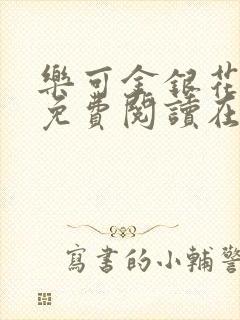 樂可金銀花
免費閱讀在
寫書的小輔警